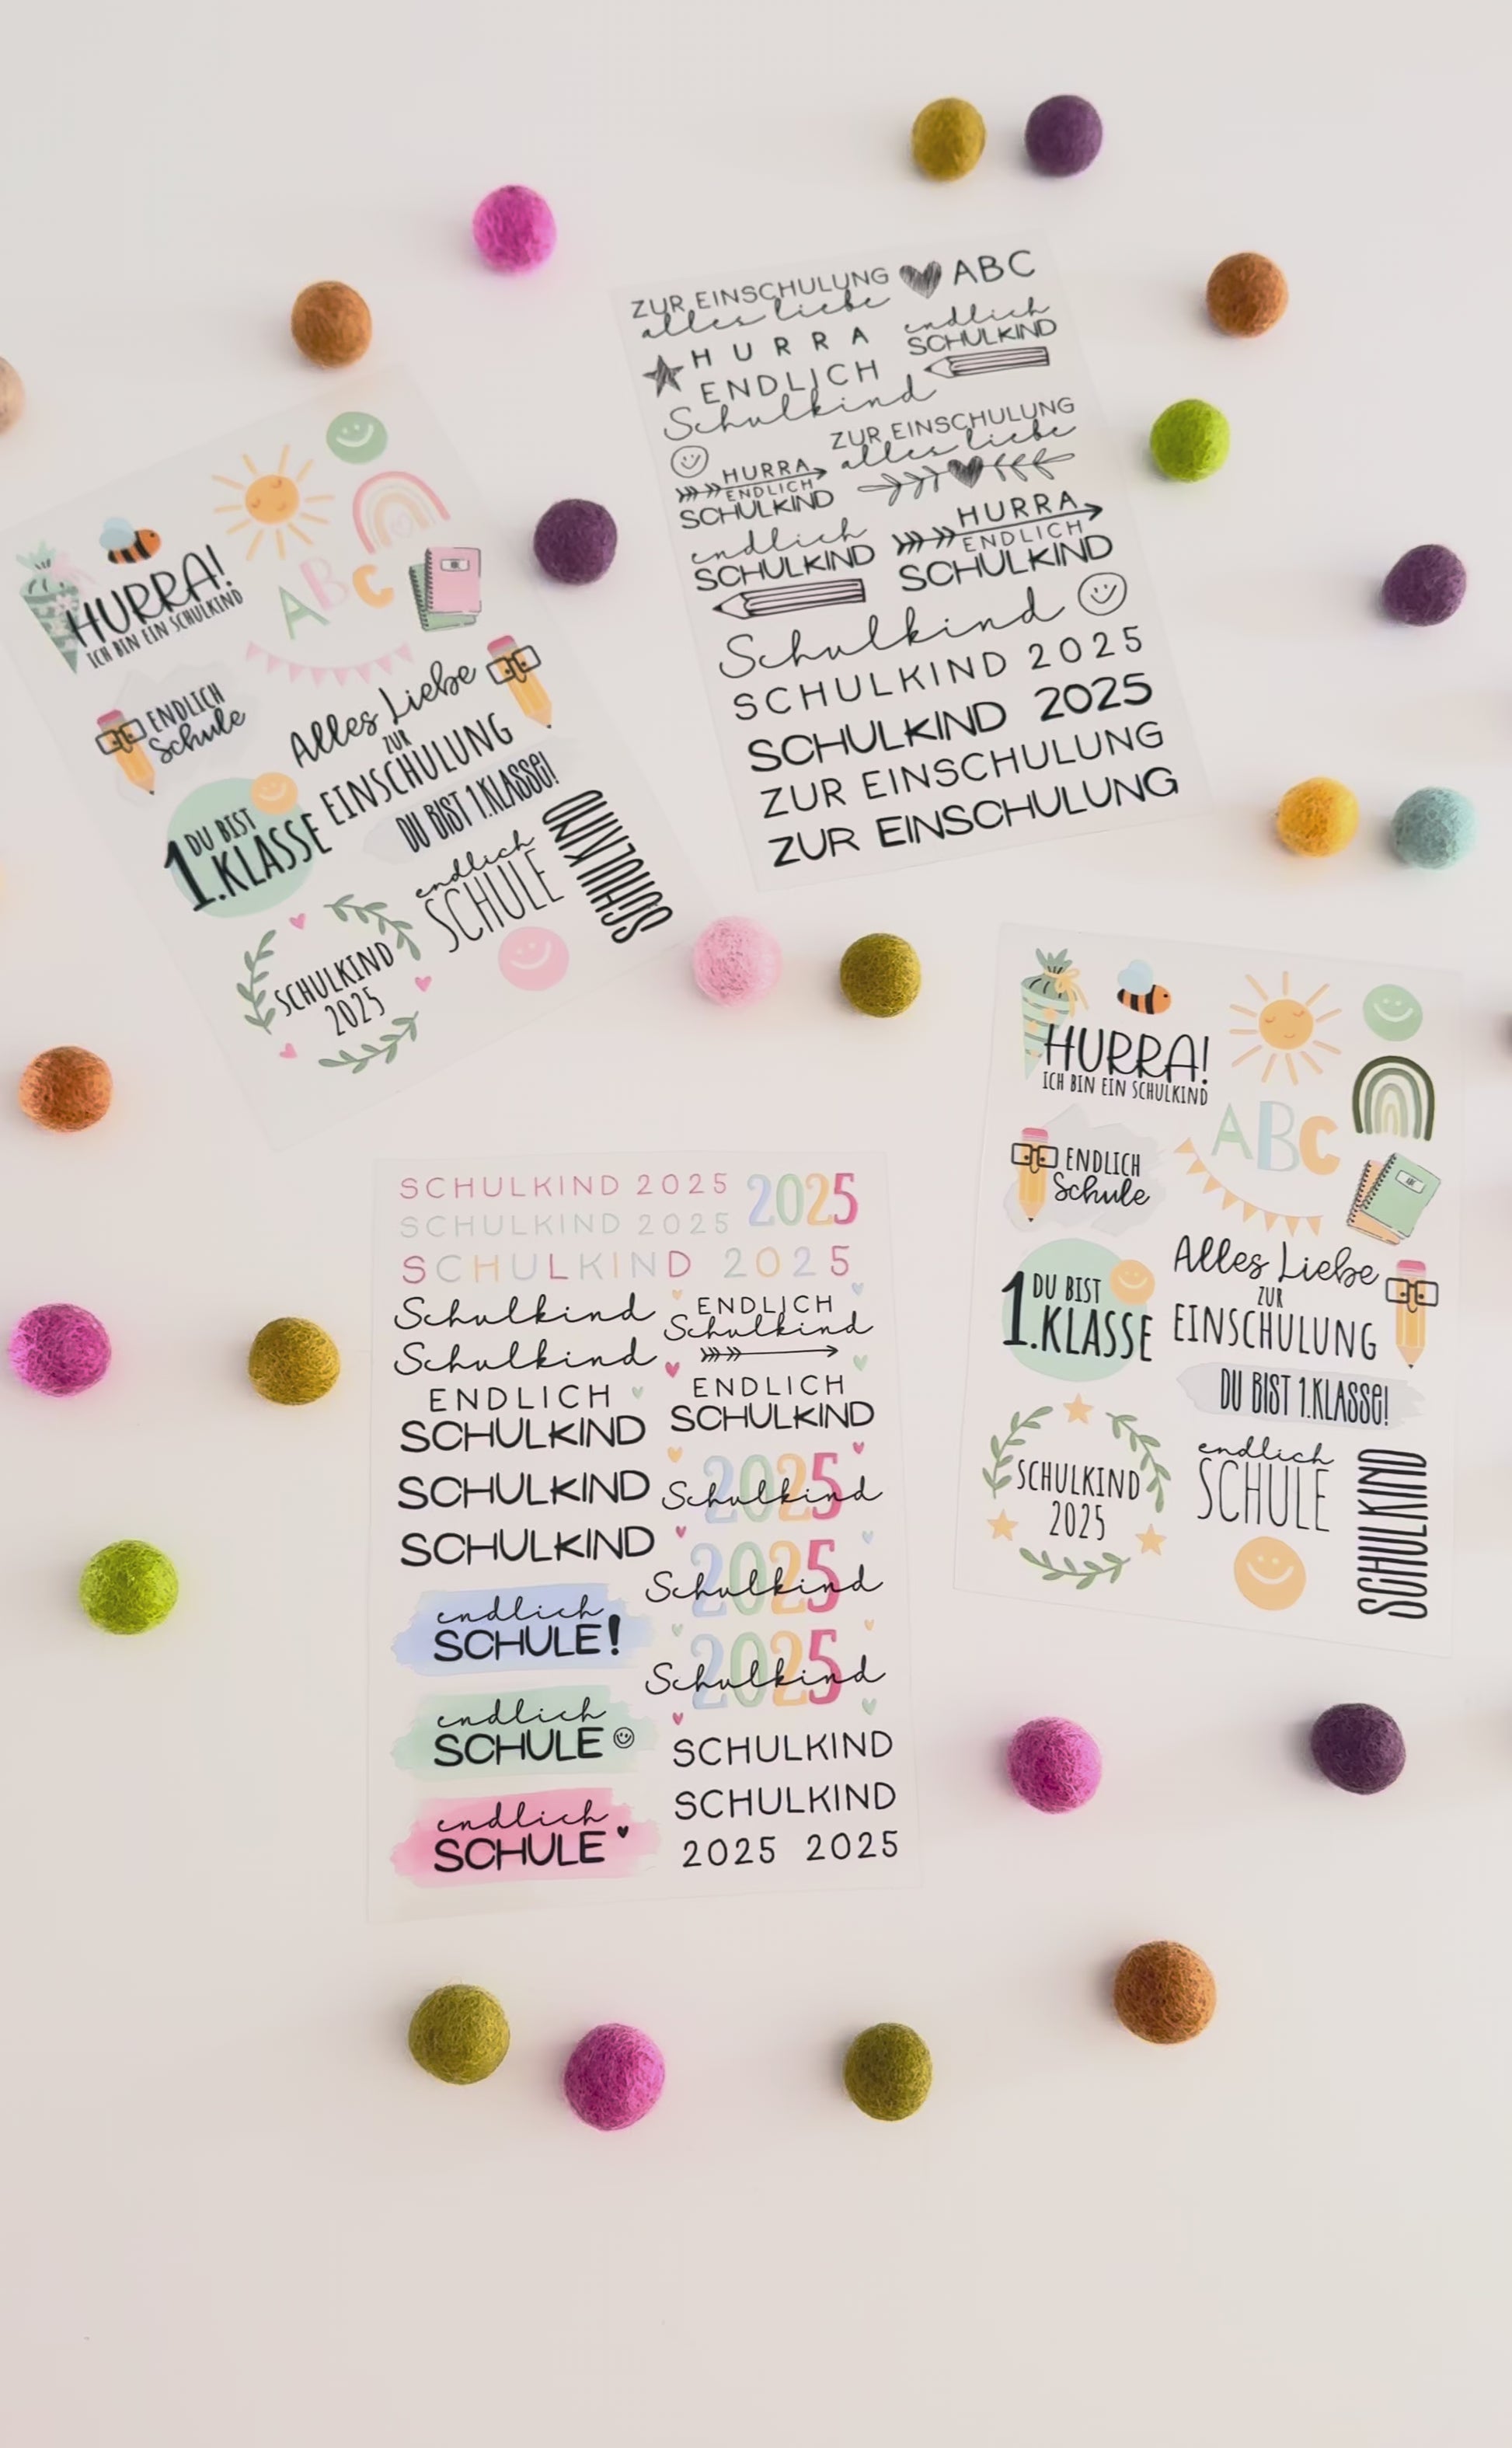 ZUR EINSCHULUNG
alles liebe
ABC
HURRA
ENDLICH
Schulkind
endlich
SCHULKIND
ZUR EINSCHULUNG
alles liebe
HURRA
ENDLICH
SCHULKIND
endlich
SCHULKIND
HURRA
ENDLICH
SCHULKIND
Schulkind
SCHULKIND 2025
SCHULKIND 2025
ZUR EINSCHULUNG
ZUR EINSCHULUNG
HURRA!
ICH BIN EIN SCHULKIND
ABC
ENDLICH
Schule
Alles Liebe
ZUR
EINSCHULUNG
DU BIST
1.KLASSE
DU BIST 1.KLASSE!
endlich
SCHULE
SCHULKIND
SCHULKIND
2025
HURRA!
ICH BIN EIN SCHULKIND
ABC
ABC
ENDLICH
Schule
Alles Liebe
ZUR
EINSCHULUNG
DU BIST
1.KLASSE
DU BIST 1.KLASSE!
SCHULKIND
2025
endlich
SCHULE
SCHULKIND
SCHULKIND 2025
2025
SCHULKIND 2025
SCHULKIND 2025
Schulkind
Schulkind
ENDLICH
SCHULKIND
SCHULKIND
SCHULKIND
endlich
SCHULE!
endlich
SCHULE
endlich
SCHULE
ENDLICH
Schulkind
ENDLICH
SCHULKIND
2025
Schulkind
2025
Schulkind
2025
Schulkind
SCHULKIND
SCHULKIND
2025 2025